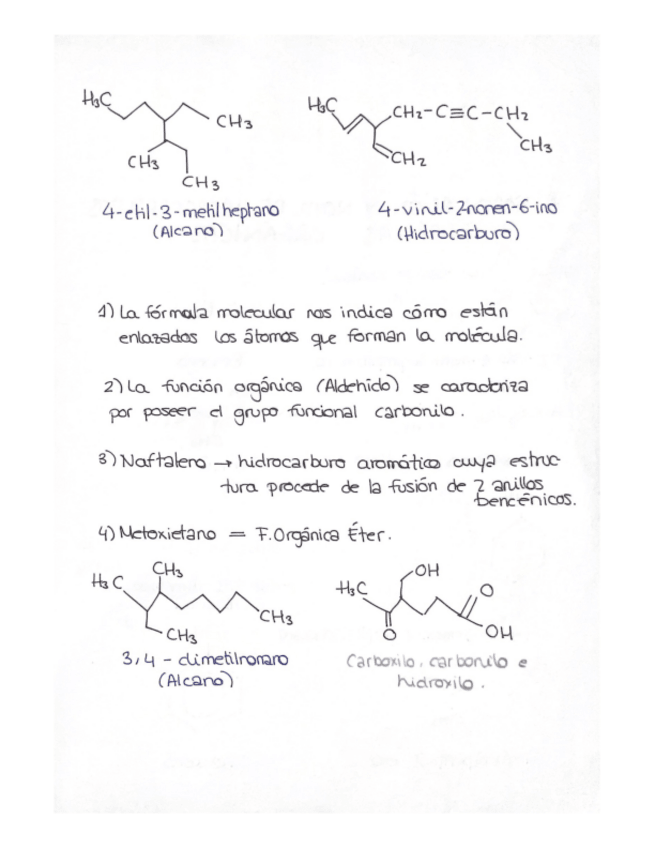 H3C
CH3
CH3
CH3
4-etil-3-metilheptano
(Alcano)
H3C
CH2-C≡C-CH2
CH3
CH2
4-vinil-2nonen-6-ino
(Hidrocarburo)
1) La fórmula molecular nos indica cómo están
enlazados los átomos que forman la molécula.
2) La función orgánica (Aldehido) se caracteriza
por poseer el grupo funcional carbonilo.
3) Naftaleno → hidrocarburo aromático cuya estruc
tura procede de la fusión de 2 anillos
bencénicos.
4) Metoxietano = F.Orgánica Éter.
CH3
H3C
CH3
CH3
3,4-dimetilnonano
(Alcano)
OH
H3C
O
O
OH
Carboxilo, carbonilo e
hidroxilo.